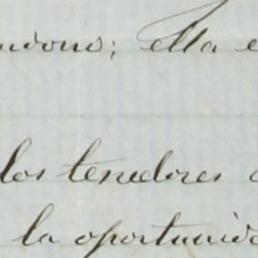 ella
los tenedores
la oportunid